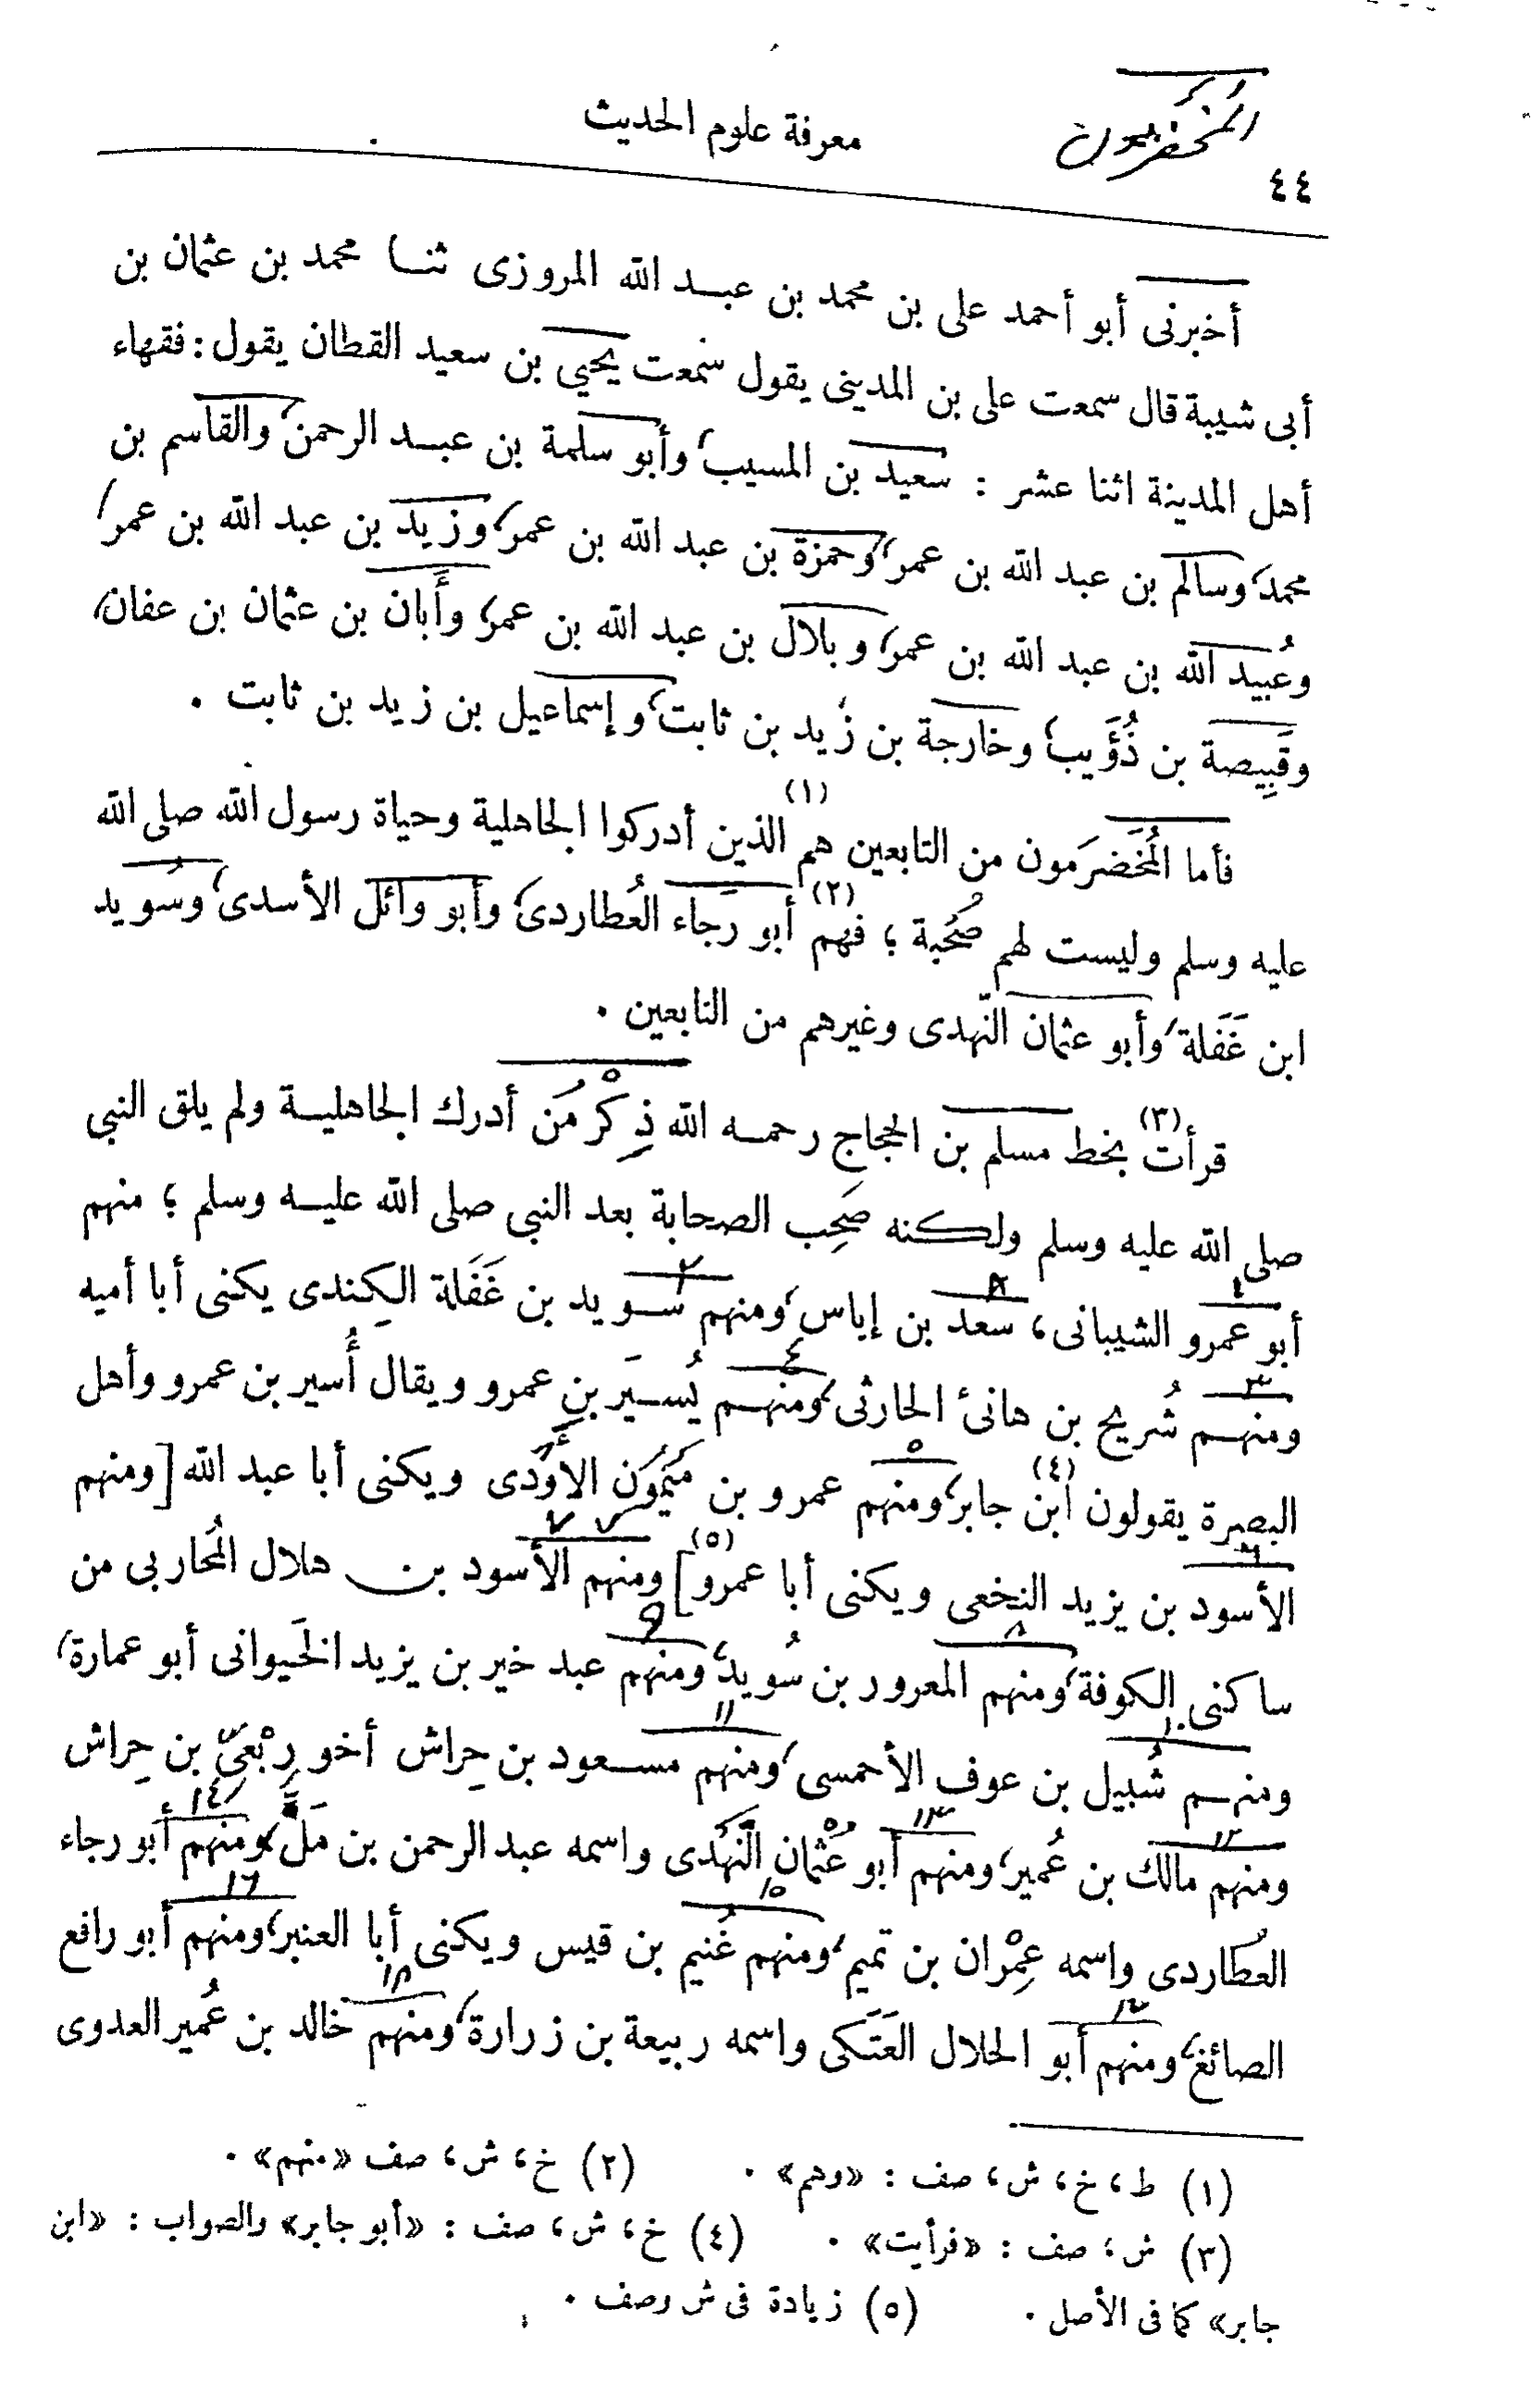 المُخَضرَمون
معرفة علوم الحديث
٤٤
أخبرنى أبو أحمد على بن محمد بن عبد الله المروزى ثنا محمد بن عثمان بن
أبى شيبة قال سمعت على بن المدينى يقول سمعت يحيي بن سعيد القطان يقول : فقهاء
أهل المدينة اثنا عشر : سعيد بن المسيب، وأبو سلمة بن عبد الرحمن، والقاسم بن
محمد، وسالم بن عبد الله بن عمر، وحمزة بن عبد الله بن عمر، وزيد بن عبد الله بن عمر،
وعُبيد الله بن عبد الله بن عمر، وبلال بن عبد الله بن عمر، وأَبان بن عثمان بن عفان،
وقَبِيصة بن ذُؤَيب، وخارجة بن زيد بن ثابت، وإسماعيل بن زيد بن ثابت .
فأما المُخَضرَمون من التابعين هم (١) الذين أدركوا الجاهلية وحياة رسول الله صلى الله
عليه وسلم وليست لهم صُحْبة ؛ فهم (٢) أبو رَجاء العُطاردى، وأبو وائل الأسدى، وسُويد
ابن غَفَلة، وأبو عثمان النّهدى وغيرهم من التابعين .
قرأت (٣) بخط مسلم بن الحجاج رحمه الله ذِكْرَ مَن أدرك الجاهلية ولم يلق النبي
صلى الله عليه وسلم ولكنه صَحِب الصحابة بعد النبي صلى الله عليه وسلم ؛ منهم
أبو عمرو الشيبانى، سعد بن إياس، ومنهم سويد بن غَفَلة الكِندى يكنى أبا أميه
ومنهم شُريح بن هانئ الحارثى، ومنهم يُسَيَر بن عمرو ويقال أُسير بن عمرو وأهل
البصرة يقولون ابن (٤) جابر، ومنهم عمرو بن مَيْمُون الأَوْدى ويكنى أبا عبد الله [ومنهم
الأسود بن يزيد النخعى ويكنى أبا عمرو] (٥) ومنهم الأسود بن هلال المُحاربى من
ساكنى الكوفة، ومنهم المعرور بن سُويد، ومنهم عبد خير بن يزيد الخَيوانى أبو عمارة،
ومنهم شُبيل بن عوف الأحمسى، ومنهم مسعود بن حِراش أخو رِبْعىّ بن حِراش
ومنهم مالك بن عُمير، ومنهم أبو عُثْمان النَّهْدى واسمه عبد الرحمن بن مَلّ، ومنهم أبو رجاء
العُطاردى واسمه عِمْران بن تميم، ومنهم غُنيم بن قيس ويكنى أبا العنبر، ومنهم أبو رافع
الصائغ، ومنهم أبو الحلال العَتَكى واسمه ربيعة بن زرارة، ومنهم خالد بن عُمير العدوى
(١) ط، خ، ش، صف : «وهم» . (٢) خ، ش، صف «منهم» .
(٣) ش، صف : «فرأيت» . (٤) خ، ش، صف : «أبو جابر» والصواب : «ابن
جابر» كما فى الأصل . (٥) زيادة فى ش وصف .